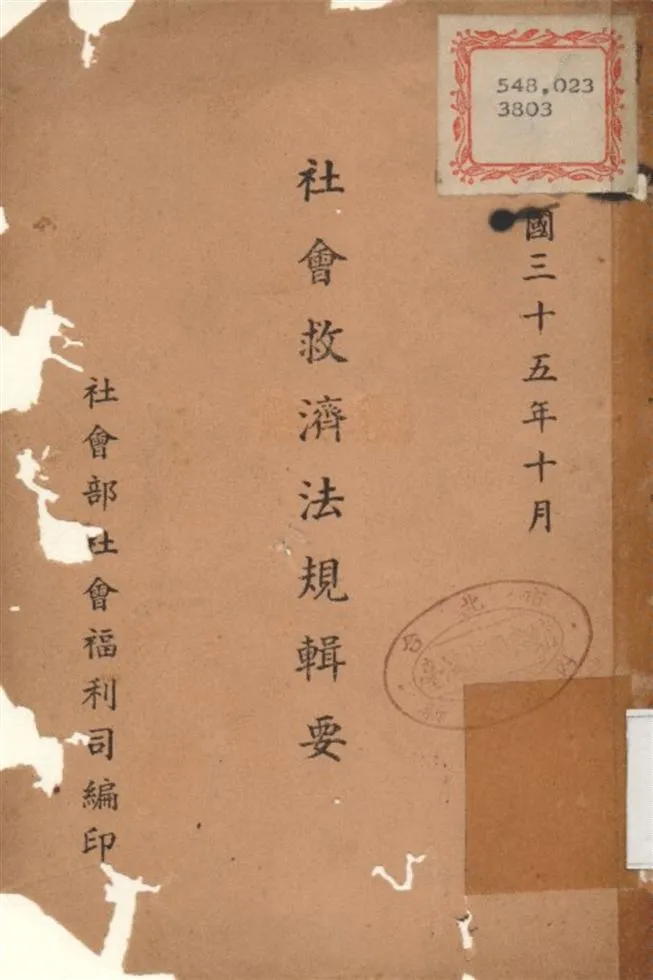 548.023
3803
國三十五年十月
社會救濟法規輯要
社會部社會福利司編印